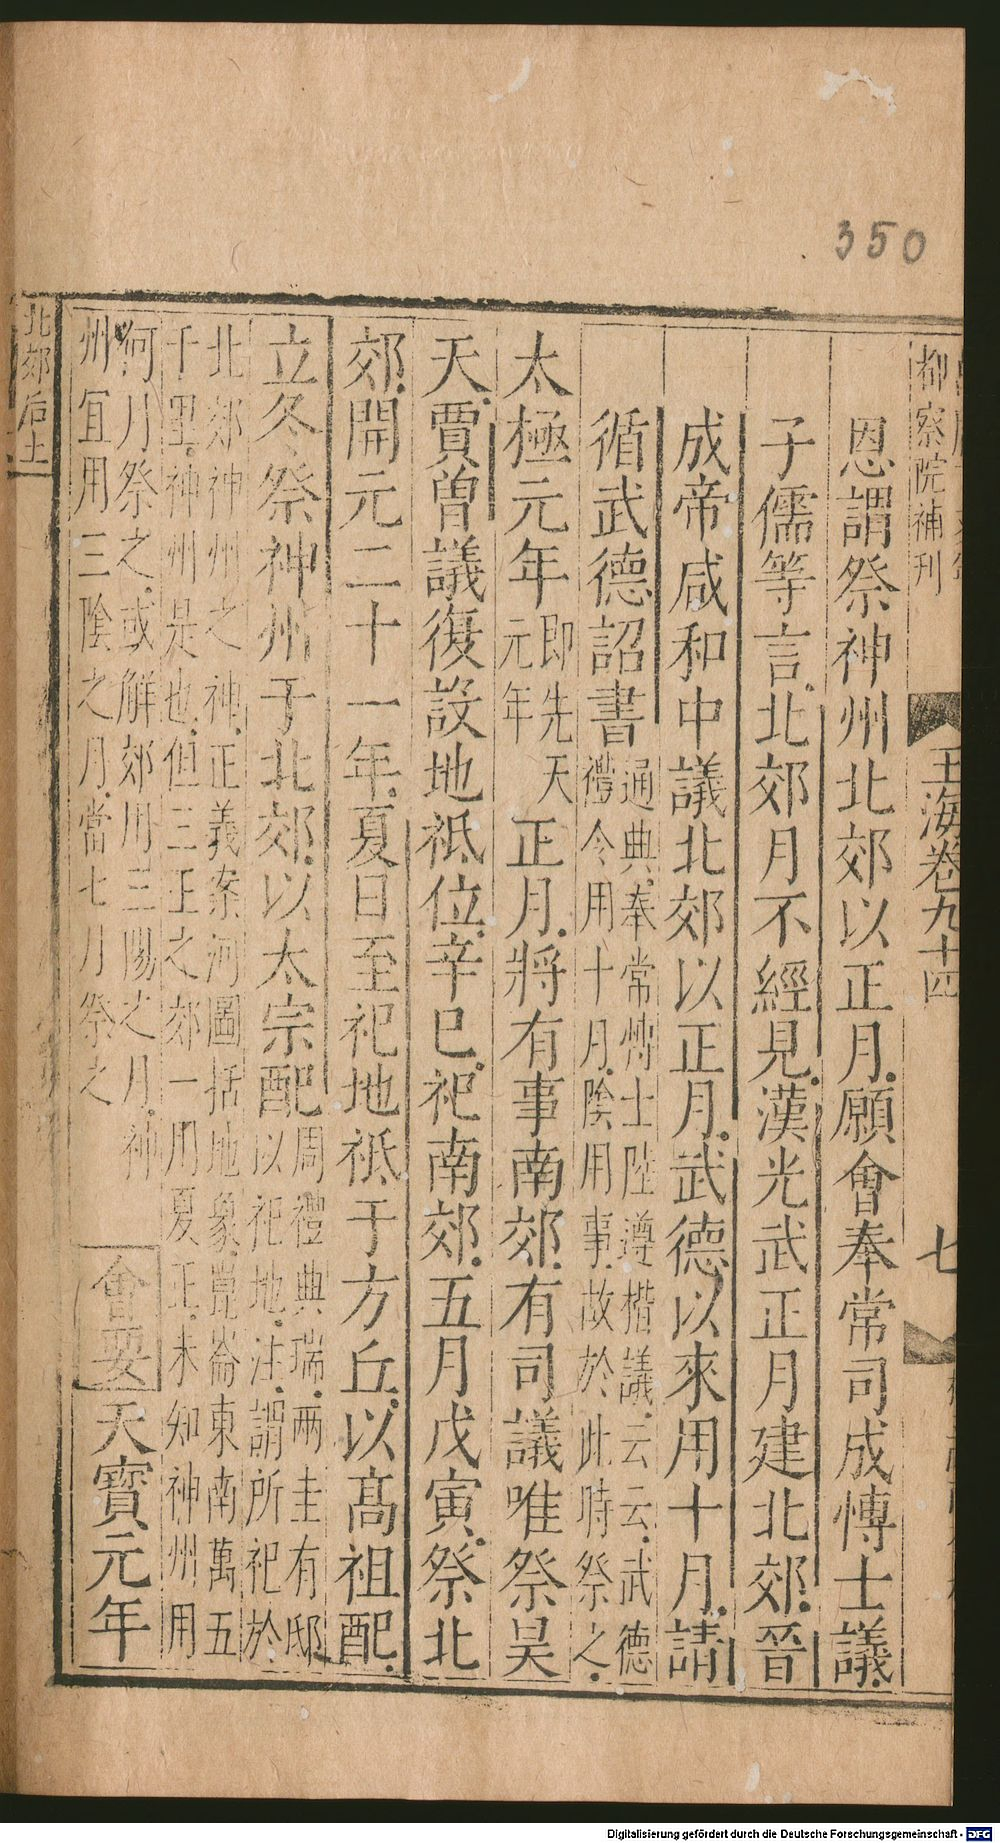 350
柳察院補刊
玉海卷九十四
七
恩謂祭神州北郊以正月願會奉常司成博士議
子儒等言北郊月不經見漢光武正月建北郊晉
成帝咸和中議北郊以正月武德以來用十月請
循武德詔書通典奉常博士陸遵楷議云云武德
禮令用十月陰用事故於此時祭之
太極元年即先天
元年正月將有事南郊有司議唯祭昊
天賈曾議復設地祗位辛巳祀南郊五月戊寅祭北
郊開元二十一年夏日至祀地祗于方丘以高祖配
立冬祭神州于北郊以太宗配周禮典瑞兩圭有邸
以祀地注謂所祀於
北郊神州之神正義案河圖括地象崑崙東南萬五
千里神州是也但三王之郊一用夏正未知神州用
何月祭之或解郊用三陽之月神
州宜用三陰之月當七月祭之會要天寶元年
北郊后土
Digitalisierung gefördert durch die Deutsche Forschungsgemeinschaft - DFG